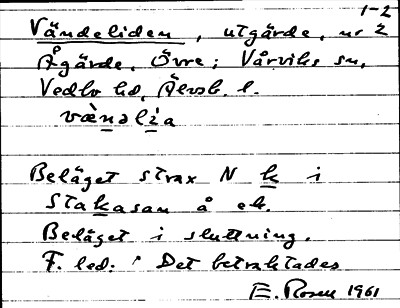 1-2
Vändeliden, utgärde, nr 2
Ågärde, Övre; Vårviks sn,
Vedbo hd, Älvsb. l.
væ̀nəlìa
Beläget strax N k i
Stakasan å ek.
Beläget i sluttning.
F. led: Det betraktades
E. Rosen 1961